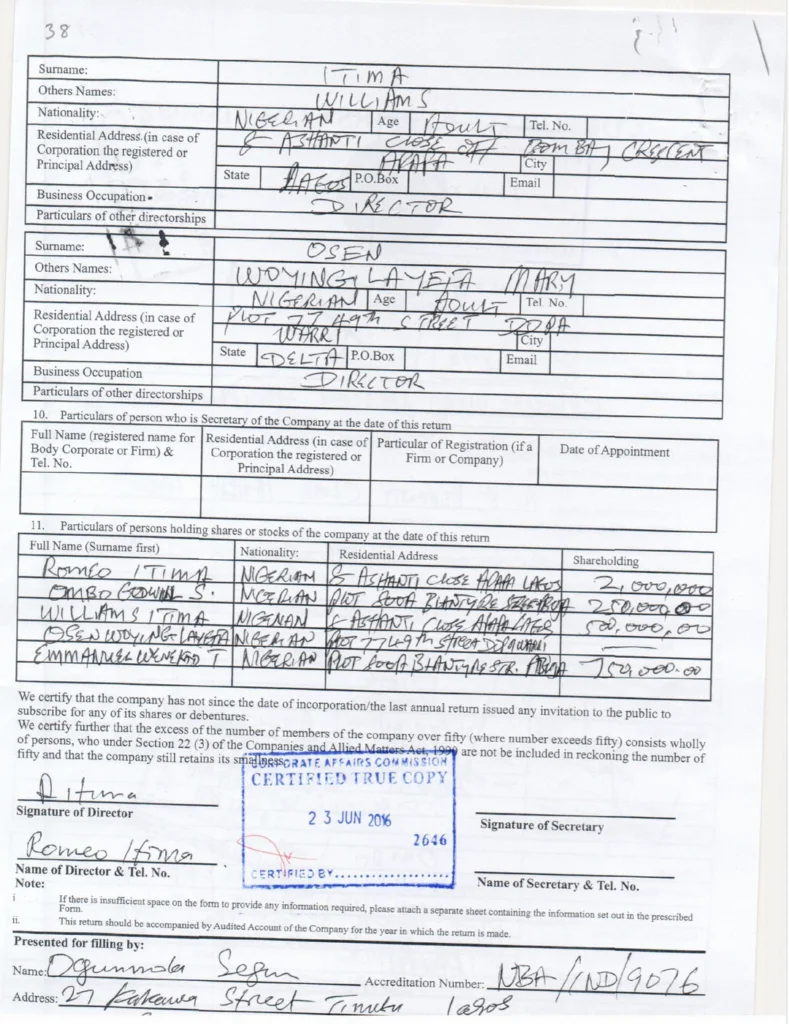 38
Surname: ITIMA
Others Names: WILLIAMS
Nationality: NIGERIAN Age Adult Tel. No.
Residential Address (in case of Corporation the registered or Principal Address) 8 ASHANTI CLOSE OFF BOMBAY CRESCENT
APAPA City
State LAGOS P.O.Box Email
Business Occupation DIRECTOR
Particulars of other directorships
Surname: OSEN
Others Names: WOYINGI LAYEFA MARY
Nationality: NIGERIAN Age Adult Tel. No.
Residential Address (in case of Corporation the registered or Principal Address) PLOT 77 49th STREET DDPA
WARRI City
State DELTA P.O.Box Email
Business Occupation DIRECTOR
Particulars of other directorships
10. Particulars of person who is Secretary of the Company at the date of this return
Full Name (registered name for Body Corporate or Firm) & Tel. No. Residential Address (in case of Corporation the registered or Principal Address) Particular of Registration (if a Firm or Company) Date of Appointment
11. Particulars of persons holding shares or stocks of the company at the date of this return
Full Name (Surname first) Nationality: Residential Address Shareholding
ROMEO ITIMA NIGERIAN 8 ASHANTI CLOSE APAPA LAGOS 2,000,000
OMBO GODWILL S. NIGERIAN PLOT 800A BLANTYRE 250,000,00
WILLIAMS ITIMA NIGERIAN 8 ASHANTI CLOSE APAPA LAGOS 500,000,00
OSEN WOYINGI LAYEFA NIGERIAN PLOT 77 49th STREET DDPA WARRI
EMMANUEL T NIGERIAN PLOT 800A BLANTYRE STR. ABUJA 750,000.00
We certify that the company has not since the date of incorporation/the last annual return issued any invitation to the public to
subscribe for any of its shares or debentures.
We certify further that the excess of the number of members of the company over fifty (where number exceeds fifty) consists wholly
of persons, who under Section 22 (3) of the Companies and Allied Matters Act, 1990 are not be included in reckoning the number of
fifty and that the company still retains its smallness.
CORPORATE AFFAIRS COMMISSION
CERTIFIED TRUE COPY
23 JUN 2016
2646
CERTIFIED BY....................
R Itima
Signature of Director
Signature of Secretary
Romeo Itima
Name of Director & Tel. No.
Name of Secretary & Tel. No.
Note:
i If there is insufficient space on the form to provide any information required, please attach a separate sheet containing the information set out in the prescribed
Form.
ii. This return should be accompanied by Audited Account of the Company for the year in which the return is made.
Presented for filling by:
Name: Ogunmola Segun Accreditation Number: NBA/IND/9076
Address: 27 Kakawa Street Tinubu lagos